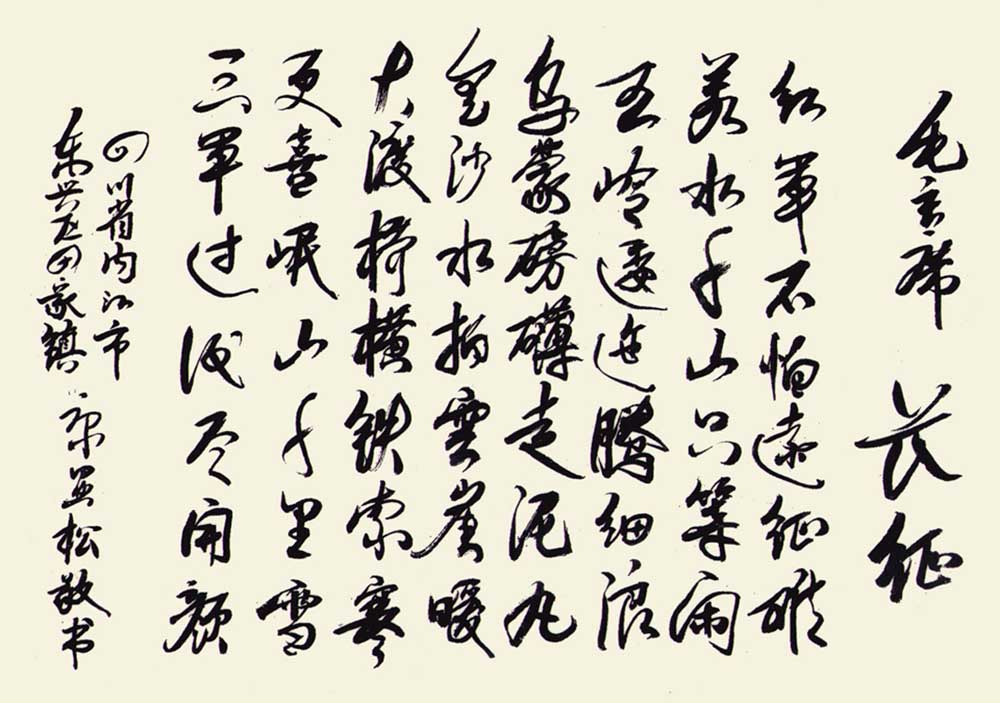 毛主席 长征
红军不怕遠征难
萬水千山只等闲
五岭逶迤腾细浪
乌蒙磅礴走泥丸
金沙水拍雲崖暖
大渡桥横铁索寒
更喜岷山千里雪
三军过後尽开颜
四川省内江市
东兴区田家镇 松敬书